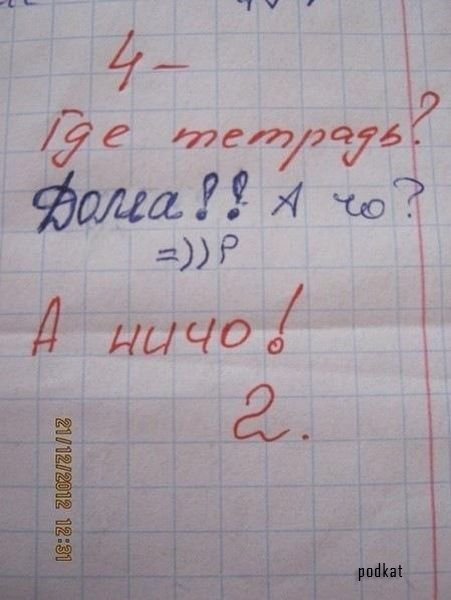 4-
Где тетрадь?
Дома!! А чо?
=))P
А ничо!
2.
21/12/2012 12:31
podkat